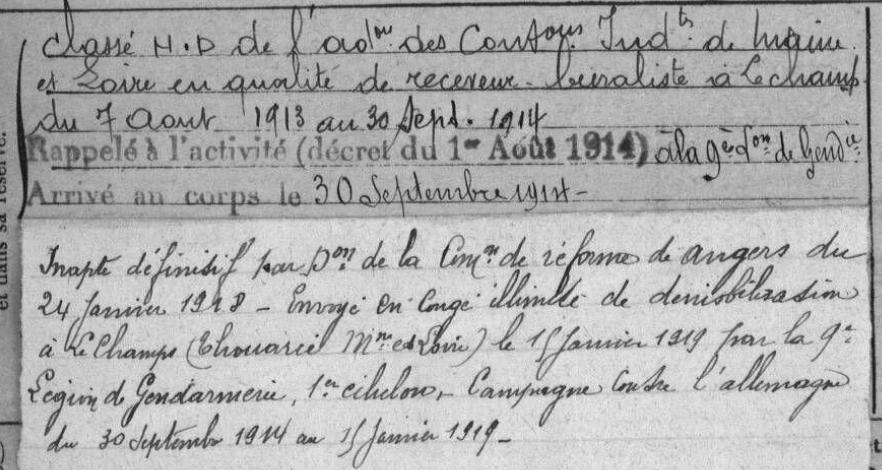 classé N.D de l'adon des Contons Indtes de Maine
et Loire en qualité de receveur-buraliste à Lechamp
du 7 Aout 1913 au 30 Sept. 1914
Rappelé à l'activité (décret du 1er Août 1914) à la 9e Lon de Gendie
Arrivé au corps le 30 Septembre 1914 -
Inapte définitif par Don de la Comon de réforme de Angers du
24 Janvier 1918 - Envoyé en Congé illimité de démobilisation
à Le Champs (Thouarcé Mne et Loire) le 15 Janvier 1919 par la 9e
Légion de Gendarmerie, 1er échelon, Campagne Contre l'allemagne
du 30 Septembre 1914 au 15 Janvier 1919 -
et dans sa réserve.